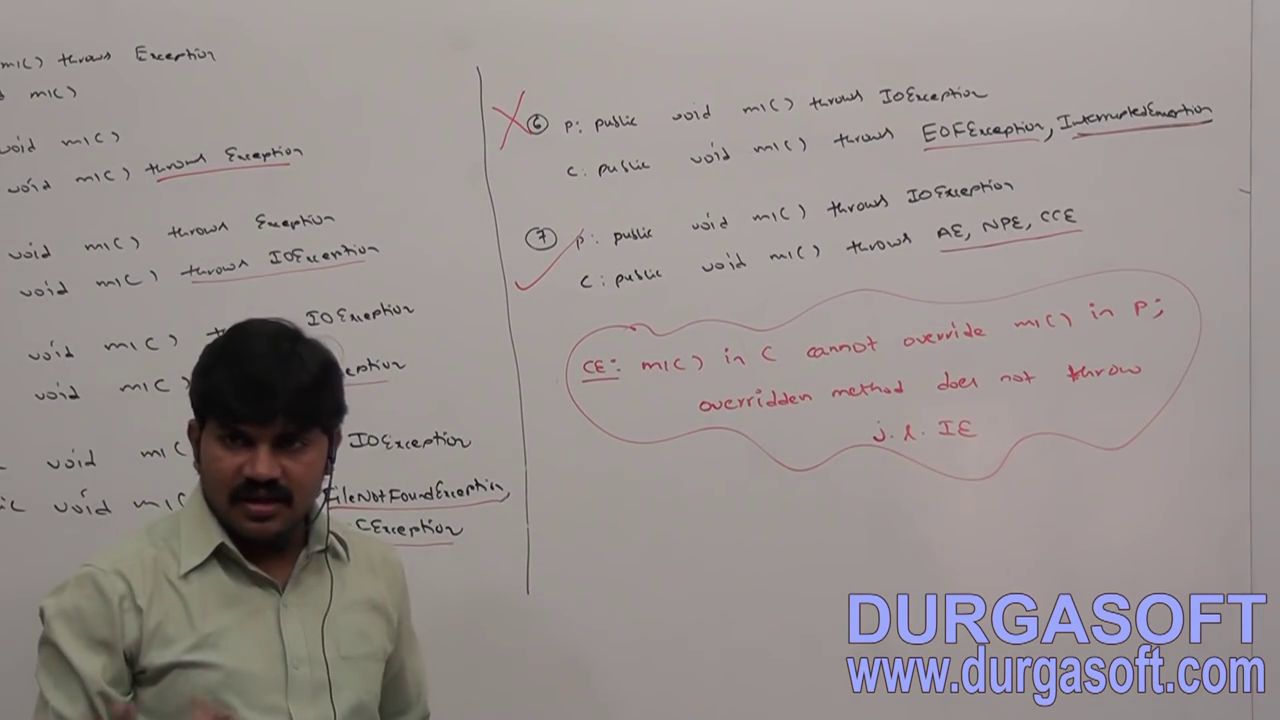 m1() throws Exception
m1()
void m1()
void m1() throws Exception
void m1() throws Exception
void m1() throws IOException
void m1() IOException
void m1()
void m1( IOException
void m1( FileNotFoundException,
EException
X ⑥ P: public void m1() throws IOException
C: public void m1() throws EOFException, InterruptedException
⑦ P: public void m1() throws IOException
C: public void m1() throws AE, NPE, CCE
CE: m1() in C cannot override m1() in P;
overridden method does not throw
j.l.IE
DURGASOFT
www.durgasoft.com